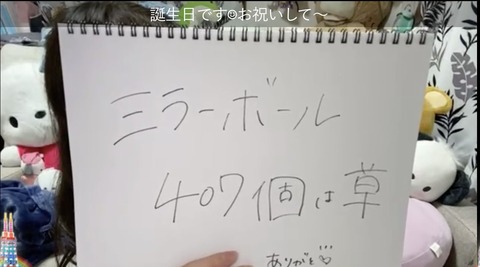 誕生日です☺お祝いして〜
ミラーボール
407個は草
ありがと